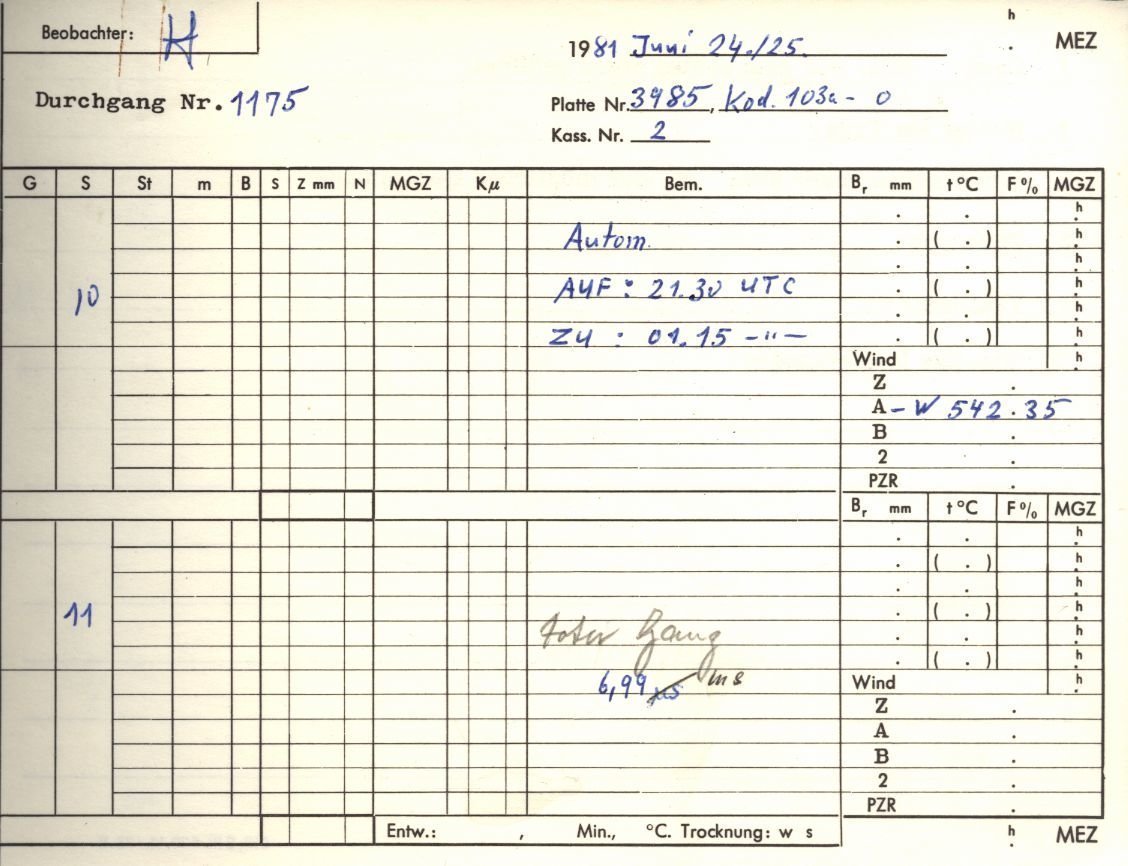 Beobachter: H
h
. MEZ
1981 Juni 24./25.
Durchgang Nr. 1175
Platte Nr. 3985, Kod. 103a - O
Kass. Nr. 2
G S St m B S Z mm N MGZ Kμ Bem. Br mm t °C F% MGZ
. . h
Autom. . ( . ) h
. . h
10 AUF : 21.30 UTC . ( . ) h
. . h
ZU : 01.15 -"- . ( . ) h
Wind h
Z .
A - W 542.35
B .
2 .
PZR .
Br mm t °C F% MGZ
. . h
. ( . ) h
. . h
11 . ( . ) h
toter Gang . . h
. ( . ) h
6,99 µs ms Wind h
Z .
A .
B .
2 .
PZR .
Entw.: , Min., °C. Trocknung: w s h
. MEZ